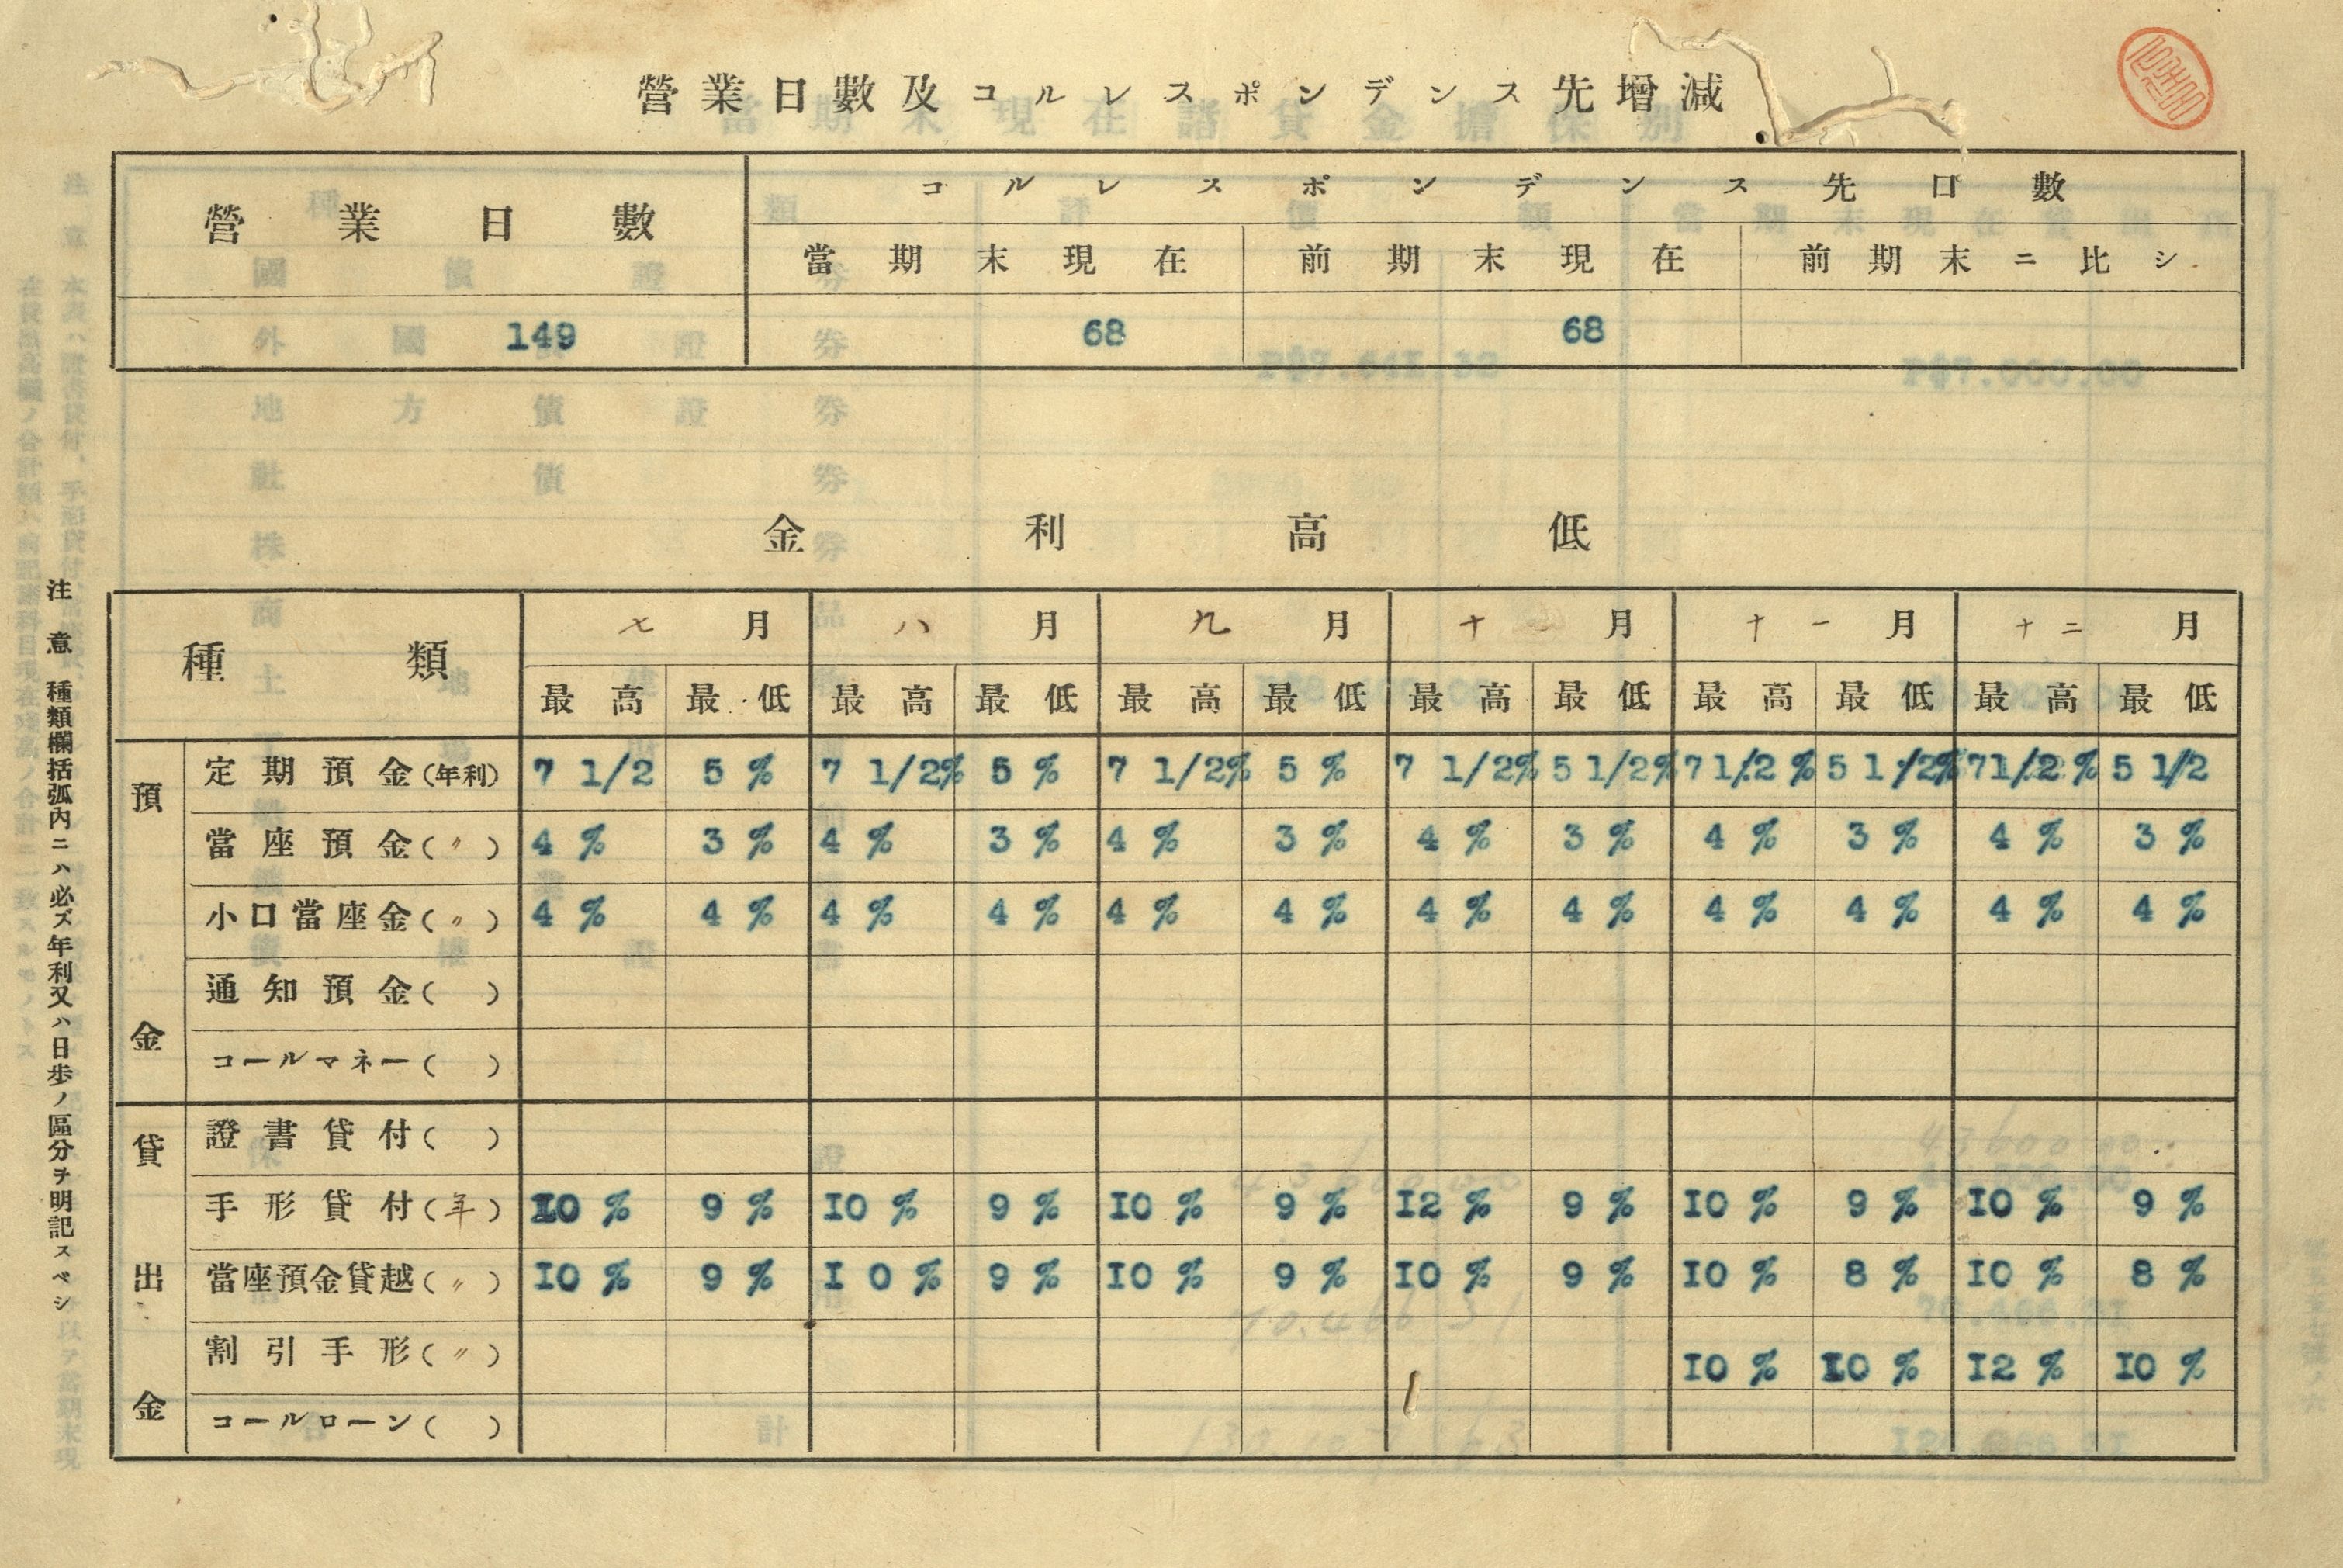 營業日數及コルレスポンデンス先增減
營業日數
コルレスポンデンス先口數
當期末現在 前期末現在 前期末ニ比シ
149 68 68
金利高低
種類 七月 八月 九月 十月 十一月 十二月
最高 最低 最高 最低 最高 最低 最高 最低 最高 最低 最高 最低
預金
定期預金(年利) 7 1/2 5 % 7 1/2% 5 % 7 1/2% 5 % 7 1/2% 5 1/2% 7 1/2 % 5 1/2% 7 1/2 % 5 1/2
當座預金(〃) 4 % 3 % 4 % 3 % 4 % 3 % 4 % 3 % 4 % 3 % 4 % 3 %
小口當座金(〃) 4 % 4 % 4 % 4 % 4 % 4 % 4 % 4 % 4 % 4 % 4 % 4 %
通知預金( )
コールマネー( )
貸出金
證書貸付( )
手形貸付(年) 10 % 9 % 10 % 9 % 10 % 9 % 12 % 9 % 10 % 9 % 10 % 9 %
當座預金貸越(〃) 10 % 9 % 1 0 % 9 % 10 % 9 % 10 % 9 % 10 % 8 % 10 % 8 %
割引手形(〃) 10 % 10 % 12 % 10 %
コールローン( )
注意 種類欄括弧內ニハ必ズ年利又ハ日步ノ區分ヲ明記スベシ